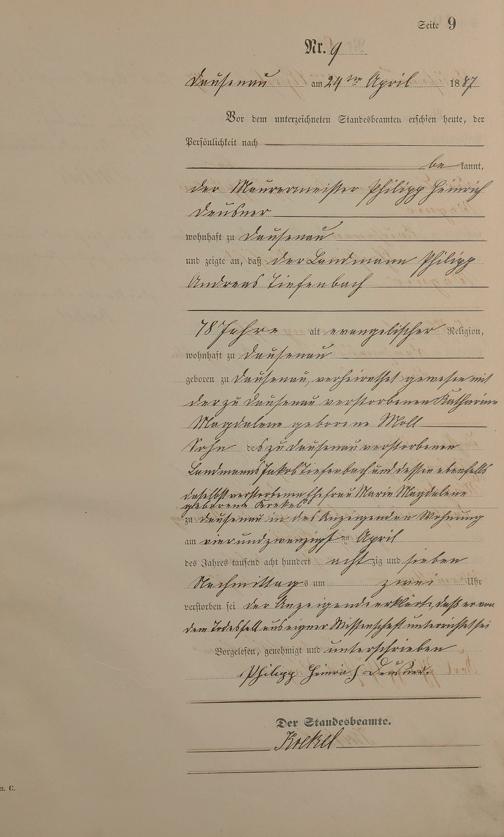 Seite 9
Nr. 9
Dausenau am 24ten April 1887
Vor dem unterzeichneten Standesbeamten erschien heute, der
Persönlichkeit nach
be kannt,
der Maurermeister Philipp Heinrich
Deusner
wohnhaft zu Dausenau
und zeigte an, daß der Landmann Philipp
Andreas Tiefenbach
78 Jahre alt evangelischer Religion,
wohnhaft zu Dausenau
geboren zu Dausenau, verheirathet gewesen mit
der zu Dausenau verstorbenen Katharina
Magdalene geborene Moll
Sohn des zu Dausenau verstorbenen
Landmanns Jakob Tiefenbach und dessen ebenfalls
daselbst verstorbenen Ehefrau Maria Magdalene
geborene
zu Dausenau in des Anzeigenden Wohnung
am vierundzwanzigsten April
des Jahres tausend acht hundert acht zig und sieben
Nachmittags um zwei Uhr
verstorben sei der Anzeigende erklärte, daß er von
dem Todesfall aus eigner Wissenschaft unterrichtet sei
Vorgelesen, genehmigt und unterschrieben
Philipp Heinrich
Der Standesbeamte.
n. C.